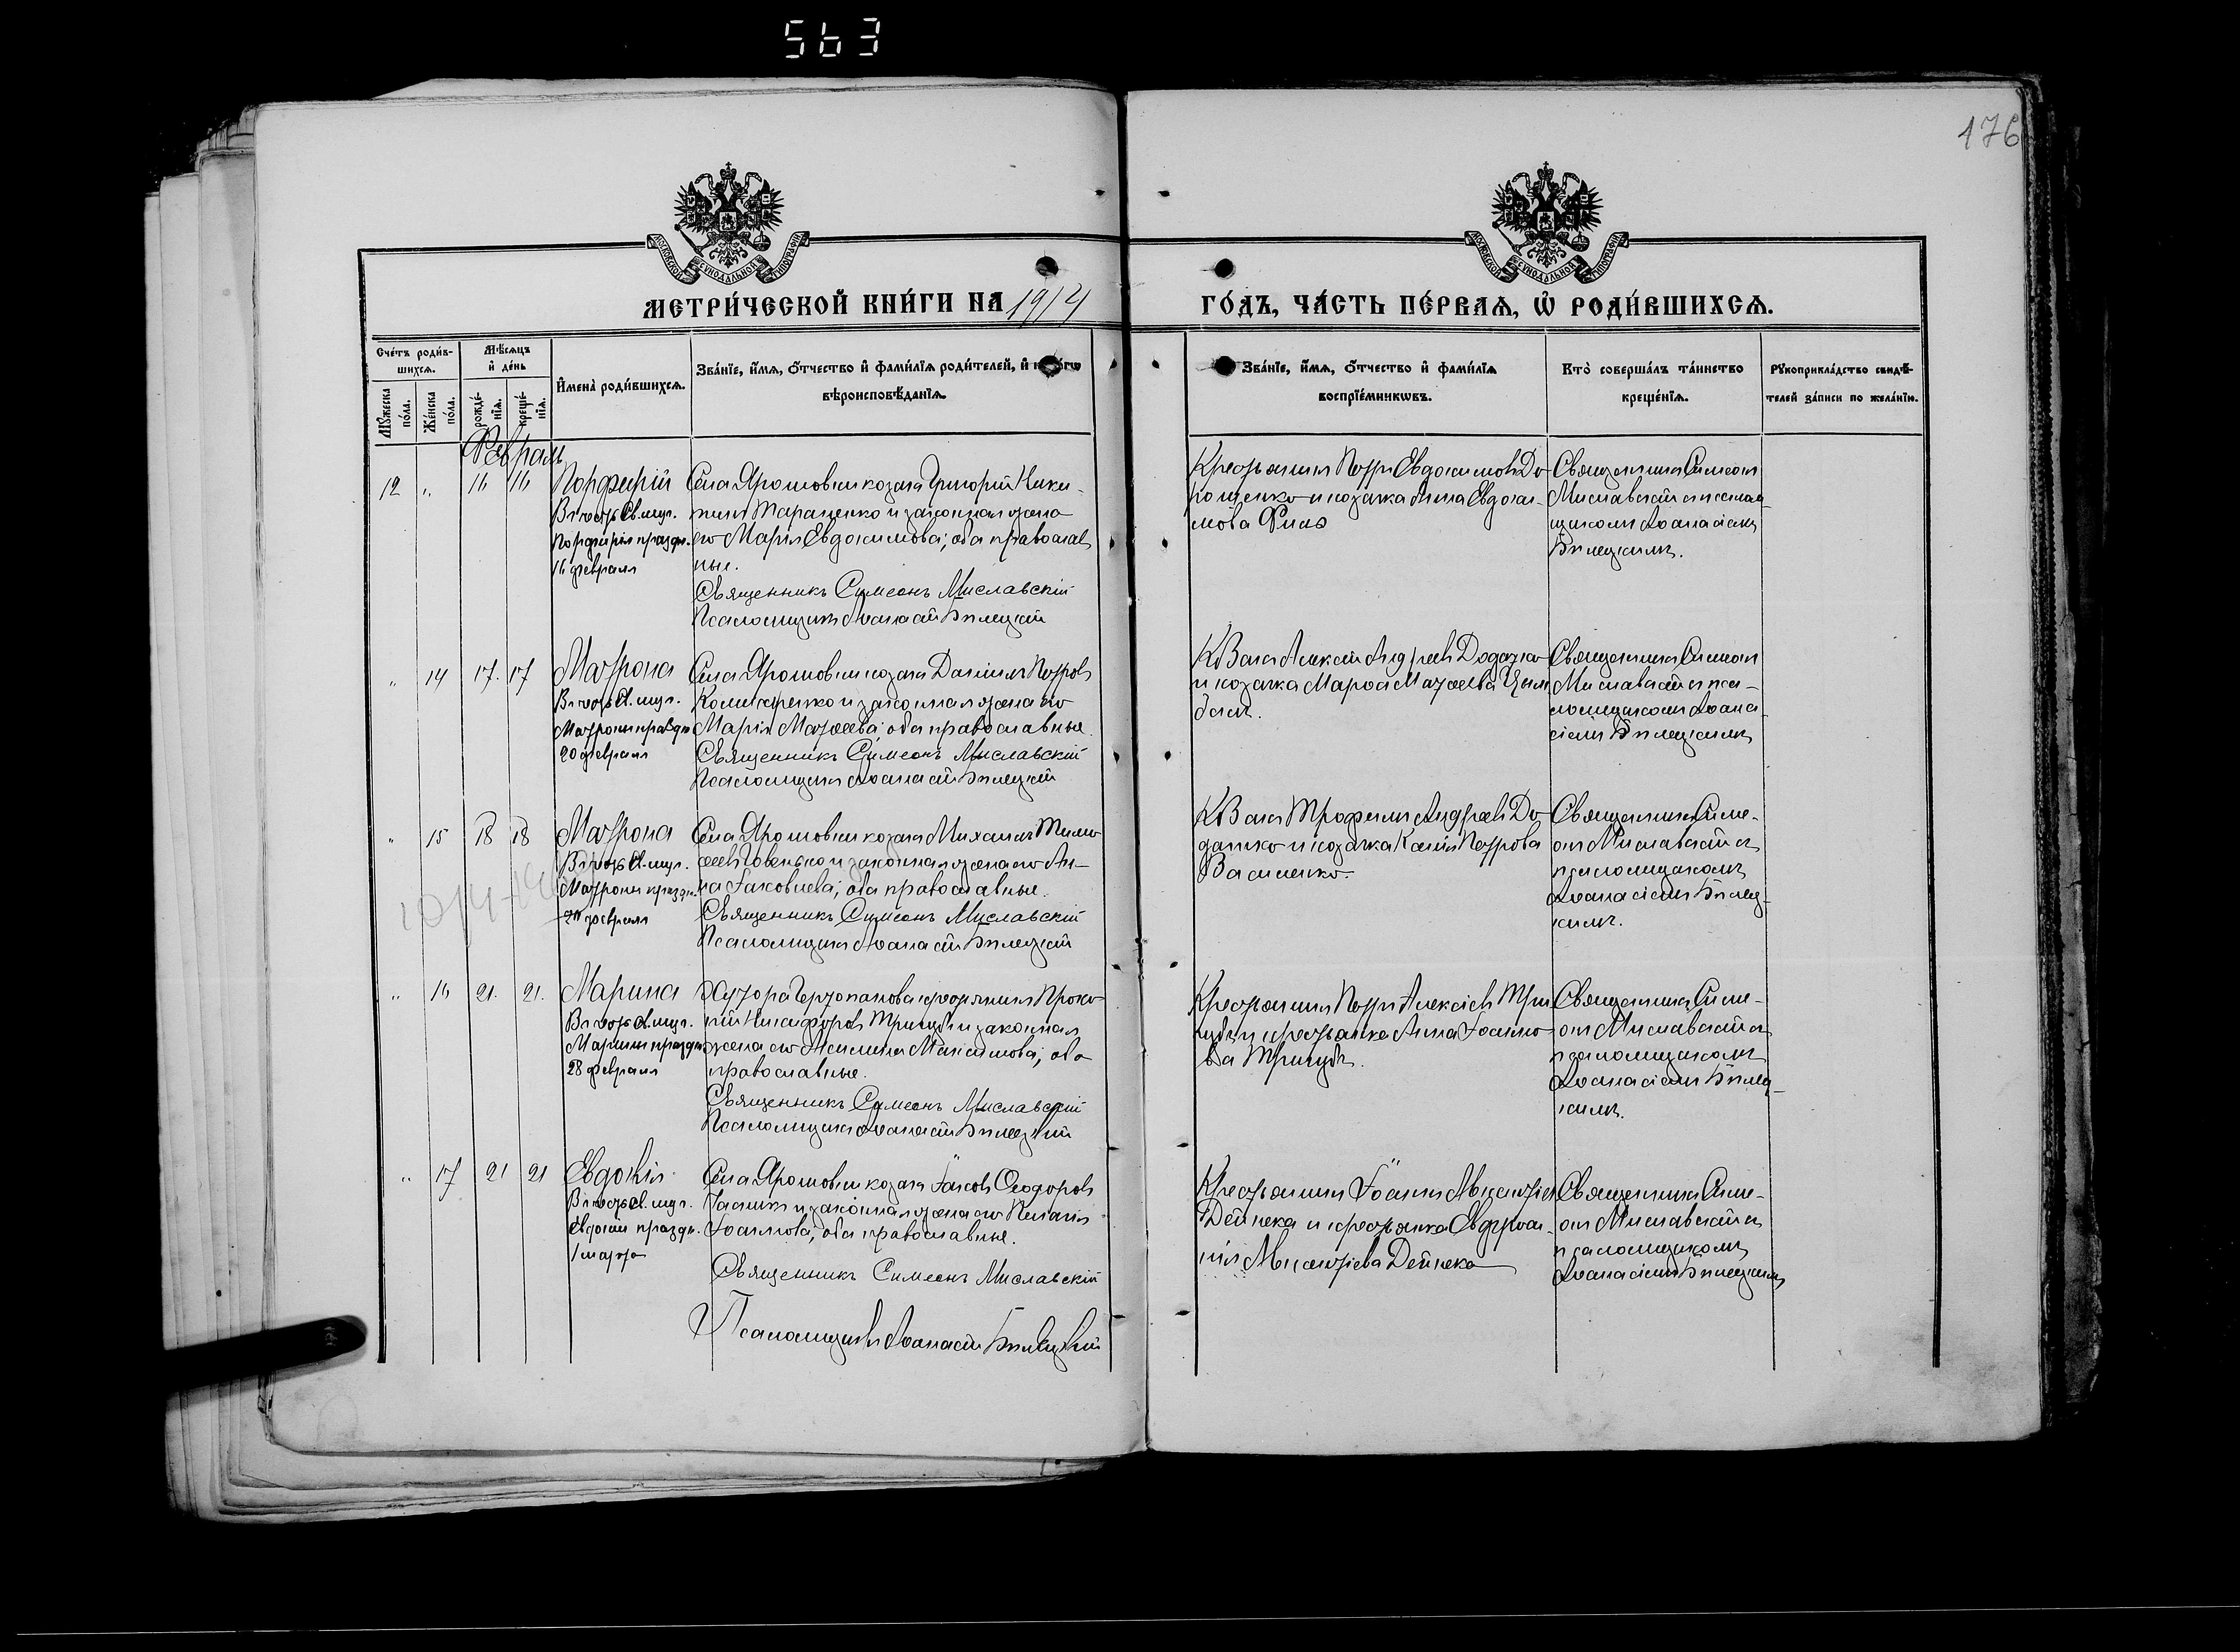 563
176
МОСКОВСКОЙ СУНОДАЛЬНОЙ ТИПОГРАФИИ
МОСКОВСКОЙ СУНОДАЛЬНОЙ ТИПОГРАФИИ
МЕТРИ́ЧЕСКОЙ КНИ́ГИ НА 1914
ГО́ДЪ, ЧА́СТЬ ПЕ́РВАѦ, Ѡ҆ РОДИ́ВШИХСѦ.
Сче́тъ роди́в-
шихсѧ.
Мꙋ́жеска по́ла.
Же́нска по́ла.
Мѣ́сѧцъ
и҆ де́нь
рожде́-
нїѧ.
креще́-
нїѧ.
И҆мена̀ роди́вшихсѧ.
Зва́нїе, и҆́мѧ, ѻ҆́тчество и҆ фами́лїѧ роди́телей, и҆
вѣроисповѣ́данїѧ.
Зва́нїе, и҆́мѧ, ѻ҆́тчество и҆ фами́лїѧ
воспрїе́мникѡвъ.
Кто̀ соверша́лъ та́инство
креще́нїѧ.
Рꙋкоприкла́дство свидѣ́-
телей за́писи по жела́нїю.
Февраль
12 " 16 16 Порфирій
Въ честь Св. муч.
Порфирія праздн.
16 февраля
Села Ярошовки козакъ Григорій Ники-
тинъ Тараненко и законная жена
его Марія Евдокимова; оба православ
ные.
Священникъ Симеонъ Миславскій
Псаломщикъ Аѳанасій Билецкій
Крестьянинъ Петръ Евдокимовъ До
рошенко и козачка Анна Евдоки-
мова
Священникъ Симеонъ
Миславскій съ псалом
щикомъ Аѳанасіемъ
Билецкимъ.
" 14 17. 17 Матрона
Въ честь Св. муч.
Матроны праздн.
20 февраля
Села Ярошовки козакъ Даніилъ Петровъ
и законная жена его
Марія Матѳеева; оба православные.
Священникъ Симеонъ Миславскій
Псаломщикъ Аѳанасій Билецкій
Козакъ Алексій Андреевъ Додатко
и козачка Марѳа Матѳеева
Священникъ Симеонъ
Миславскій съ пса-
ломщикомъ Аѳана
сіемъ Билецкимъ
" 15 18 18 Матрона
Въ честь Св. муч.
Матроны праздн.
20 февраля
Села Ярошовки козакъ Михаилъ Тимо
ѳеевъ и законная жена его Ан-
на Іаковлева; оба православные.
Священникъ Симеонъ Миславскій
Псаломщикъ Аѳанасій Билецкій
Козакъ Трофимъ Андреевъ До
датко и козачка Ксенія Петрова
Василенко.
Священникъ Симе-
онъ Миславскій съ
псаломщикомъ
Аѳанасіемъ Билец-
кимъ.
" 16 21. 21. Марина
Въ честь Св. муч.
Марины праздн.
28 февраля
Хутора крестьянинъ Проко
пій Никифоровъ Тригубъ и законная
жена его Акилина Максимова; оба
православные.
Священникъ Симеонъ Миславскій
Псаломщикъ Аѳанасій Билецкій
Крестьянинъ Петръ Алексіевъ Три
губъ и крестьянка Анна Іоанно
ва Тригубъ.
Священникъ Симе-
онъ Миславскій съ
псаломщикомъ
Аѳанасіемъ Билец-
кимъ.
" 17 21 21 Евдокія
Въ честь Св. муч.
Евдокіи праздн.
1 марта
Села Ярошовки козакъ Іаковъ Ѳеодоровъ
и законная жена его Пелагія
Іоаннова; оба православные.
Священникъ Симеонъ Миславскій
Псаломщикъ Аѳанасій Билецкій
Крестьянинъ Іоаннъ
Дейнека и крестьянка
Дейнека
Священникъ Симе-
онъ Миславскій съ
псаломщикомъ
Аѳанасіемъ Билецкимъ